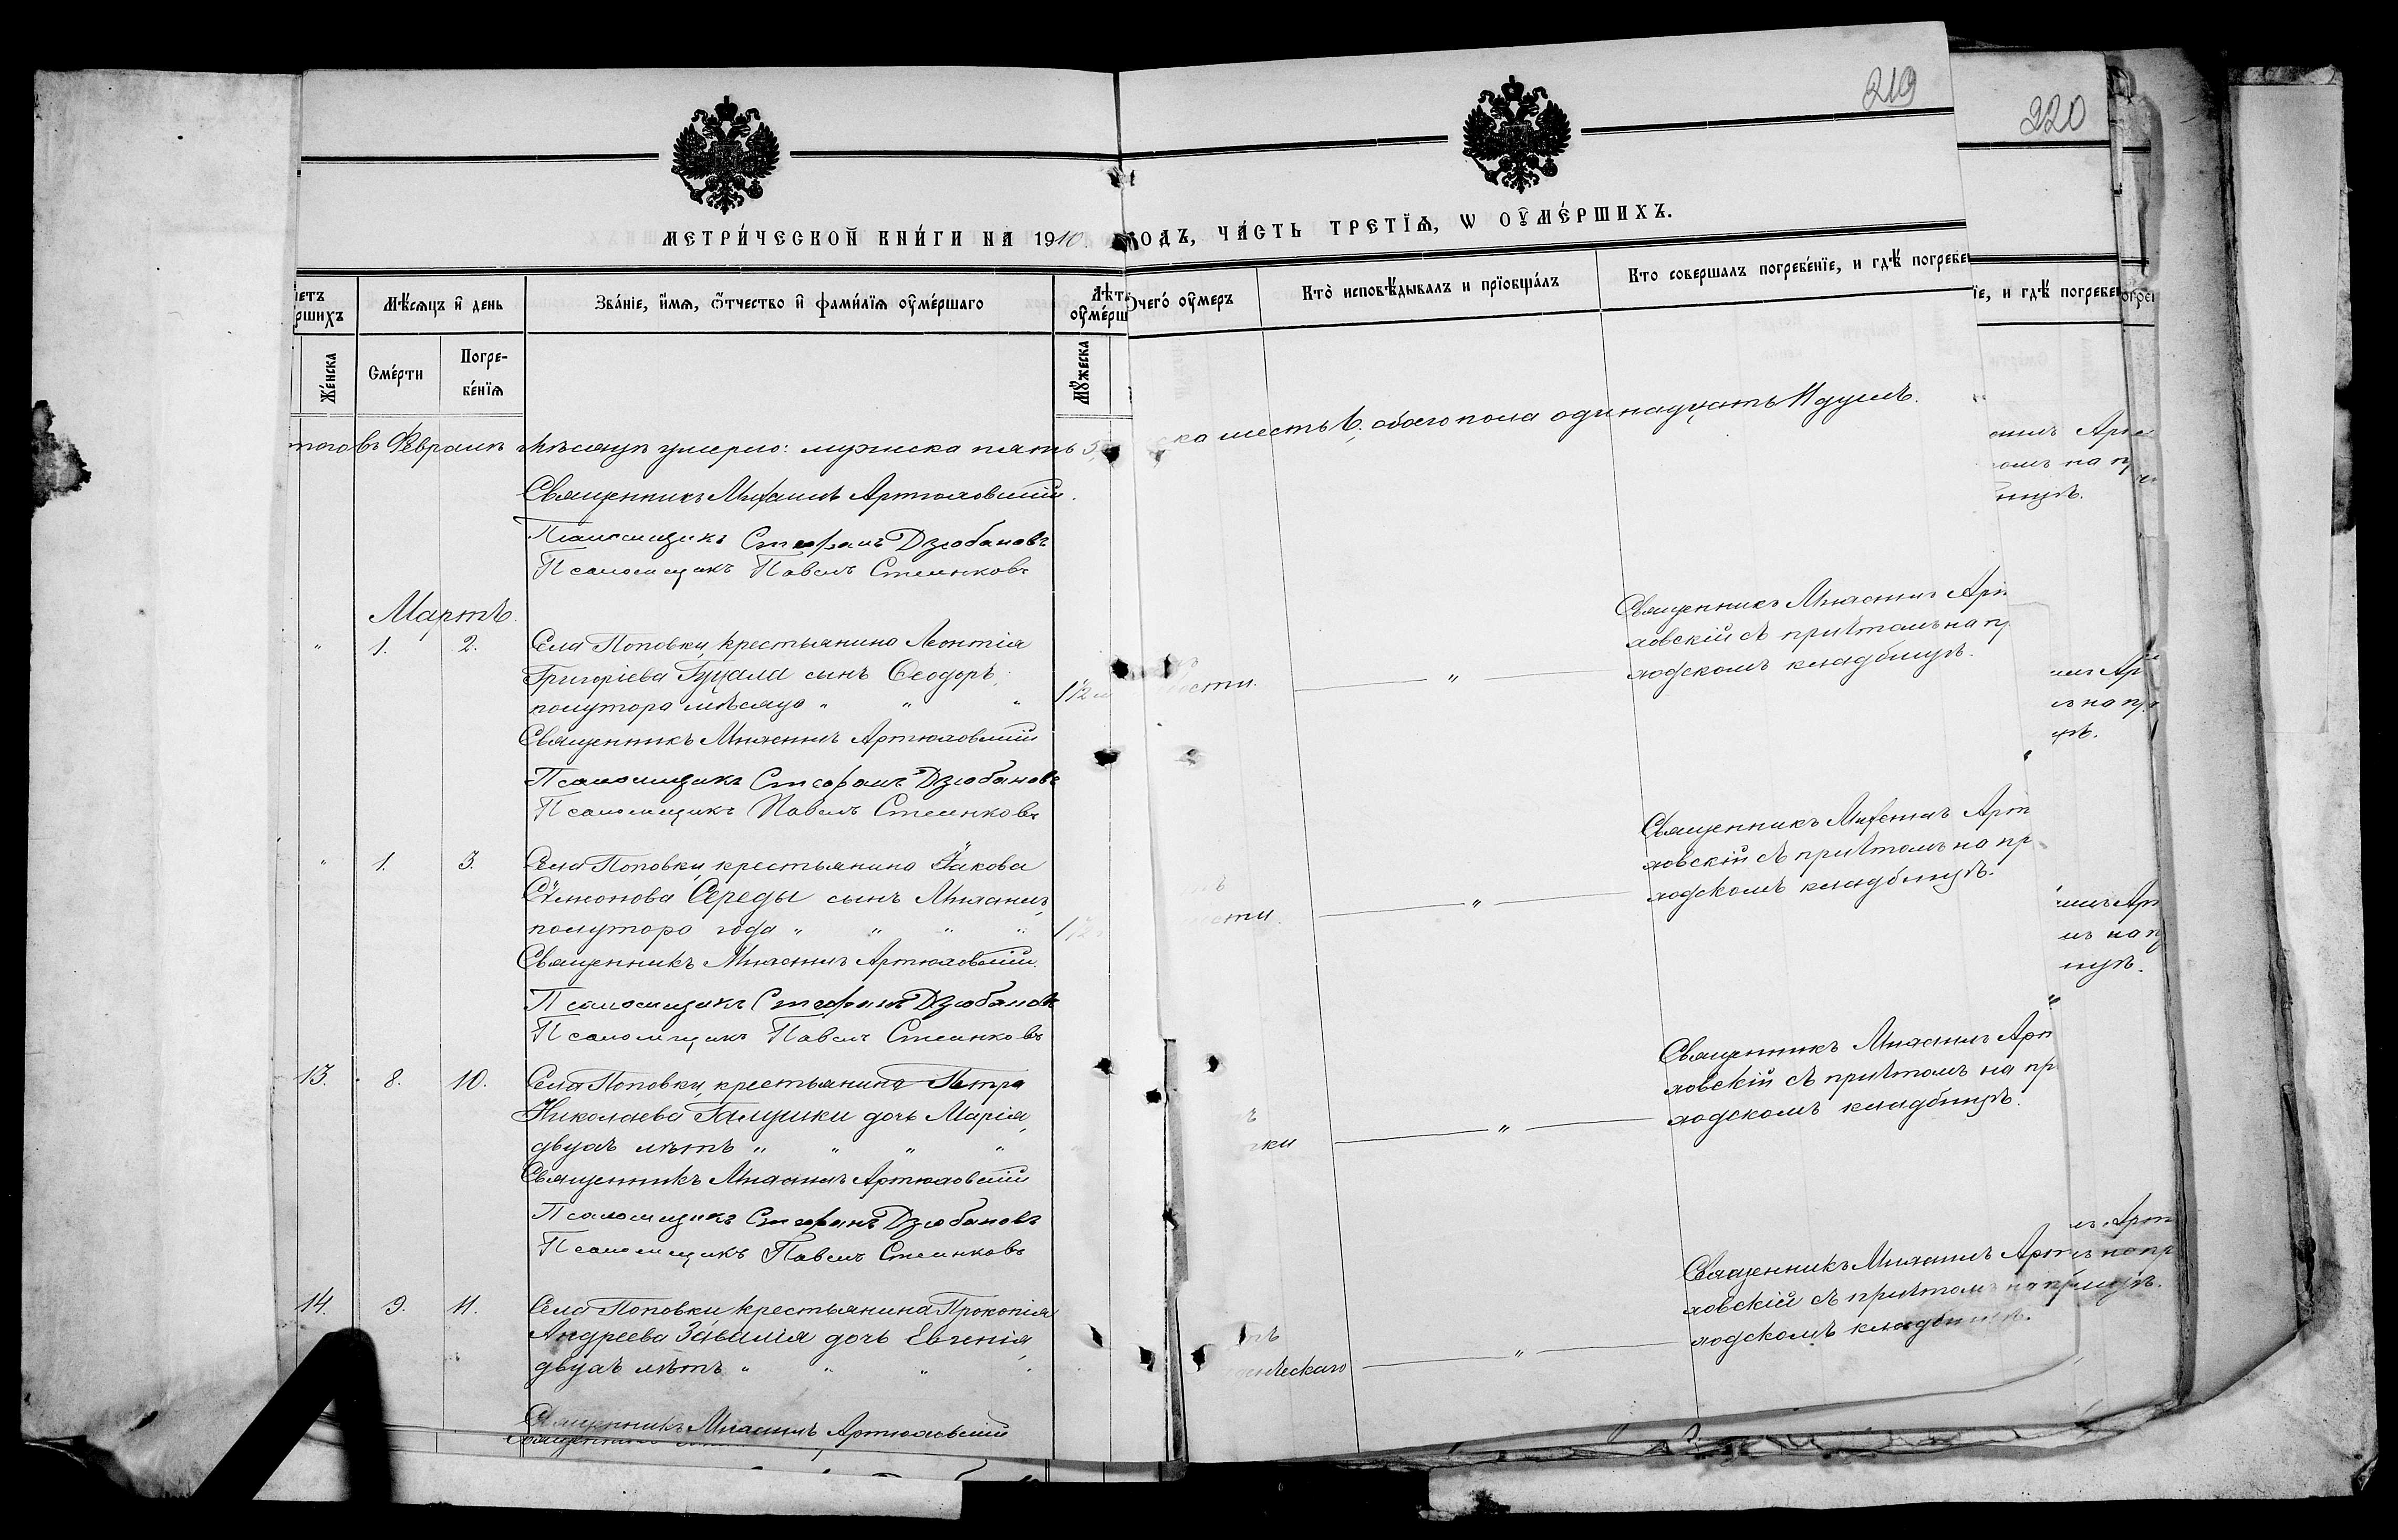 219
220
МЕТРИ́ЧЕСКОЙ КНИ́ГИ НА 1910
ОДЪ, ЧА́СТЬ ТРЕТЇѦ, Ѡ ОУ҆МЕ́РШИХЪ.
Мѣ́сѧцъ и҆ день
Зва́нїе, и҆́мѧ, ѻ҆́тчество и҆ фами́лїѧ оу҆ме́ршаго
Лѣт
оу҆ме́рш
чегѡ̀ оу҆меръ
Кто̀ исповѣ́дывалъ и прїѡбща́лъ
Кто совершалъ погребе́нїе, и гдѣ̀ погребе
їе, и гдѣ̀ погребе
Же́нска
Сме́рти
Погре-
бе́нїѧ
Мꙋ́жеска
того въ Февралѣ мѣсяцѣ умерло: мужеска пять 5,
ка шесть 6, обоего пола одинадцать 11 душъ.
Священникъ Михаилъ Артюховскій.
Псаломщикъ Стефанъ Дзюбановъ
Псаломщикъ Павелъ Стеенковъ
Мартъ.
" 1. 2. Села Поповки, крестьянина Леонтія
Григоріева Гуцала сынъ Ѳеодоръ,
полутора мѣсяца " " " 1½ м
Священникъ Михаилъ Артюховскій
Псаломщикъ Стефанъ Дзюбановъ
Псаломщикъ Павелъ Стеенковъ
ости. " Священникъ Михаилъ Арт
ховскій съ причтомъ на пр
ходскомъ кладбищѣ.
" 1. 3. Села Поповки, крестьянина Іакова
Сѵмонова Середы сынъ Михаилъ,
полутора года " " " " 1½
Священникъ Михаилъ Артюховскій.
Псаломщикъ Стефанъ Дзюбановъ
Псаломщикъ Павелъ Стеенковъ
ости. " Священникъ Михаилъ Арт
ховскій съ причтомъ на пр
ходскомъ кладбищѣ.
13. 8. 10. Села Поповки, крестьянина Петра
Николаева Галушки дочь Марія,
двухъ лѣтъ " " " "
Священникъ Михаилъ Артюховскій
Псаломщикъ Стефанъ Дзюбановъ
Псаломщикъ Павелъ Стеенковъ
" Священникъ Михаилъ Арт
ховскій съ причтомъ на пр
ходскомъ кладбищѣ.
14. 9. 11. Села Поповки крестьянина Прокопія
Андреева дочь Евгенія,
двухъ лѣтъ " " " "
Священникъ Михаилъ Артюховскій
" Священникъ Михаилъ Арт
ховскій съ причтомъ на пр
ходскомъ кладбищѣ.